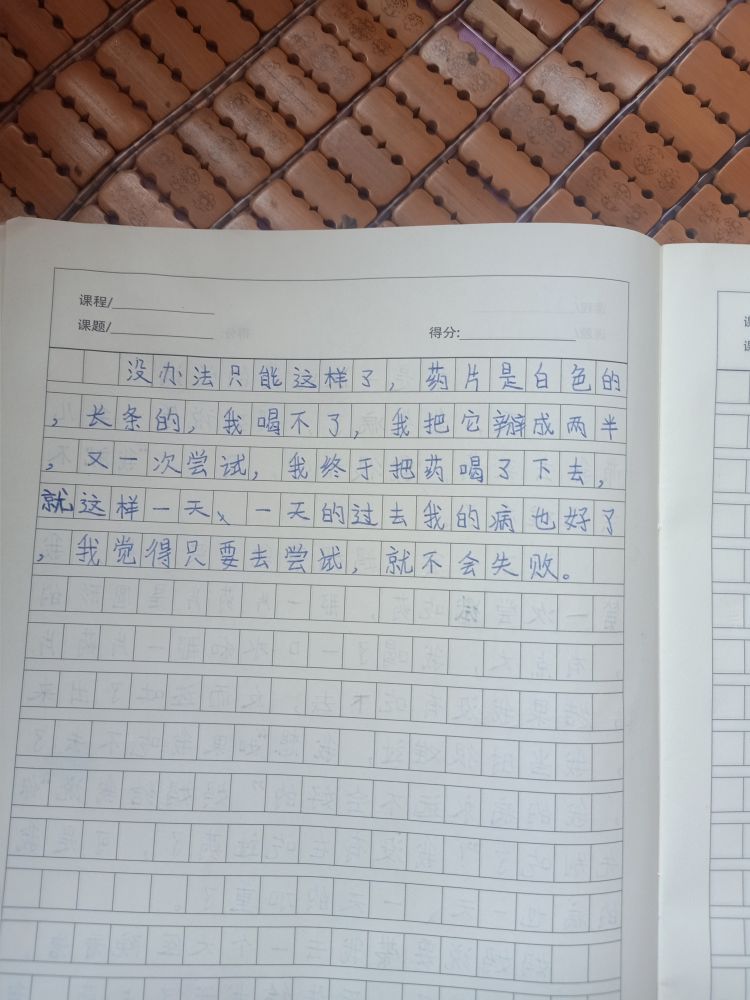 课程/
课题/
得分:
没办法只能这样了，药片是白色的
，长条的，我喝不了，我把它瓣成两半
，又一次尝试，我终于把药喝了下去，
就这样一天、一天的过去我的病也好了
，我觉得只要去尝试，就不会失败。